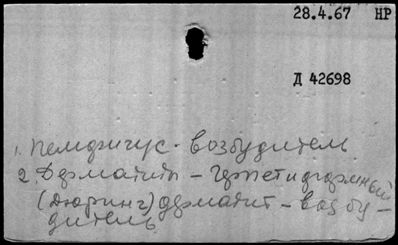 28.4.67 НР
Д 42698
1. Пемфигус - возбудитель
2. Дерматит - герпетиформный
(Дюринг) дерматит - возбу-
дитель